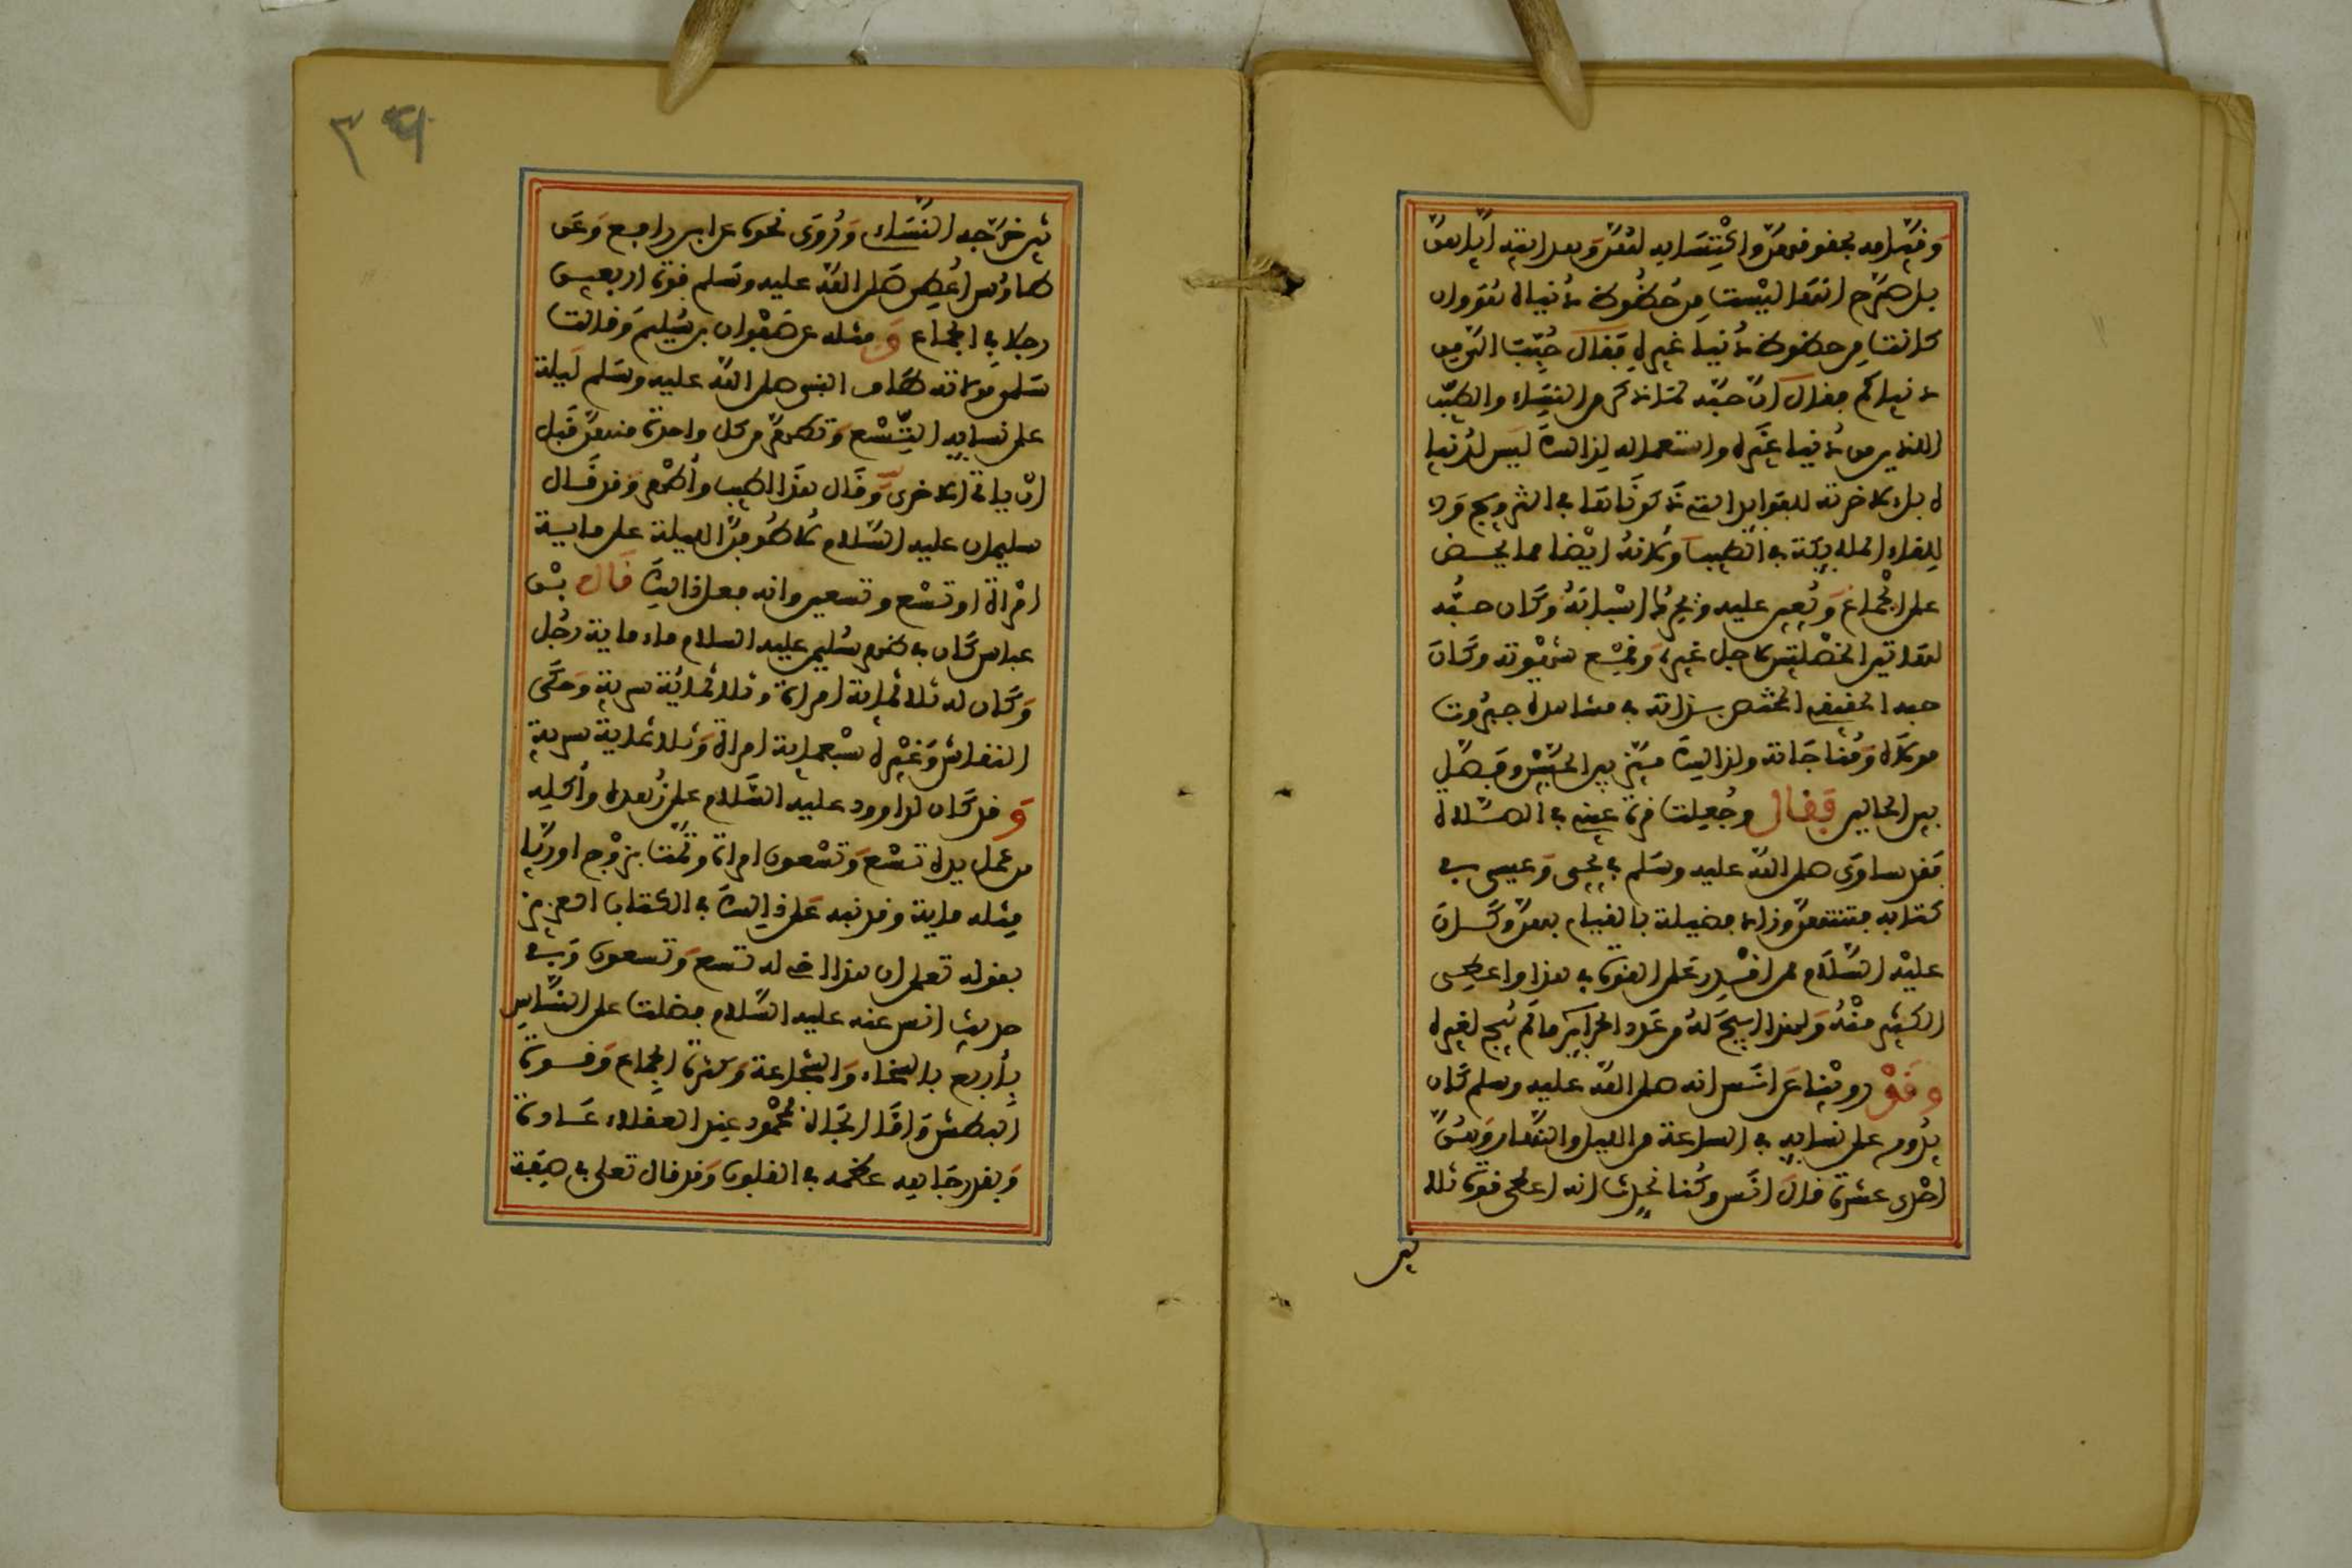 وقيامه بحقوقهن واكتسابه لهن وهدايته اياهن
بل صرح انها ليست من حظوظ دنياه هو وان
كانت من حظوظ دنيا غيره فقال حبب الي من
دنياكم فدل ان حبه لما ذكر من النساء والطيب
الذين من دنيا غيره واستعماله لذلك ليس لدنياه
بل لاخرته للفوائد التي ذكرناها في التزويج و
للقاء الملائكة في الطيب ولانه ايضا مما يحض
على الجماع ويعين عليه ويحرك اسبابه وكان حبه
لهاتين الخصلتين لاجل غيره وقمع شهوته وكان
حبه الحقيقي المختص بذاته في مشاهدة جبروت
مولاه ومناجاته ولذلك ميز بين الحبين وفصل
بين الحالين فقال وجعلت قرة عيني في الصلاة
فقد ساوى صلى الله عليه وسلم يحيى وعيسى في
كفاية فتنتهن وزاد فضيلة بالقيام بهن وكان
عليه السلام ممن اقدر على القوة في هذا واعطي
الكثير منه ولهذا ابيح له من عدد الحرائر ما لم يبح لغيره
وقد روينا عن انس انه صلى الله عليه وسلم كان
يدور على نسائه في الساعة من الليل والنهار وهن
احدى عشرة قال انس وكنا نتحدث انه اعطي قوة ثلا
ثين
٣٩
ثين خرجه النسائي وروي نحوه عن ابي رافع وعن
طاوس اعطي صلى الله عليه وسلم قوة اربعين
رجلا في الجماع ومثله عن صفوان بن سليم وقالت
سلمى مولاته طاف النبي صلى الله عليه وسلم ليلة
على نسائه التسع وتطهر من كل واحدة منهن قبل
ان ياتي الاخرى وقال هذا اطيب واطهر وقد قال
سليمان عليه السلام لاطوفن الليلة على ماية
امراة او تسع وتسعين وانه فعل ذلك قال بن
عباس كان في ظهر سليمن عليه السلام ماء ماية رجل
وكان له ثلاثماية امراة وثلاثماية سرية وحكى
النقاش وغيره سبعماية امراة وثلاثماية سرية
وقد كان لداوود عليه السلام على زهده واكله
من عمل يده تسع وتسعون امراة وتمت بزوج اوريا
مئة ماية وقد نبه على ذلك في الكتاب العزيز
بقوله تعلى ان هذا اخي له تسع وتسعون وفي
حديث انس عنه عليه السلام فضلت على الناس
باربع بالسخاء والشجاعة وكثرة الجماع وقوة
البطش واما الجاه فمحمود عند العقلاء عادة
وبقدر جاهه عظمه في القلوب وقد قال تعلى في صفة